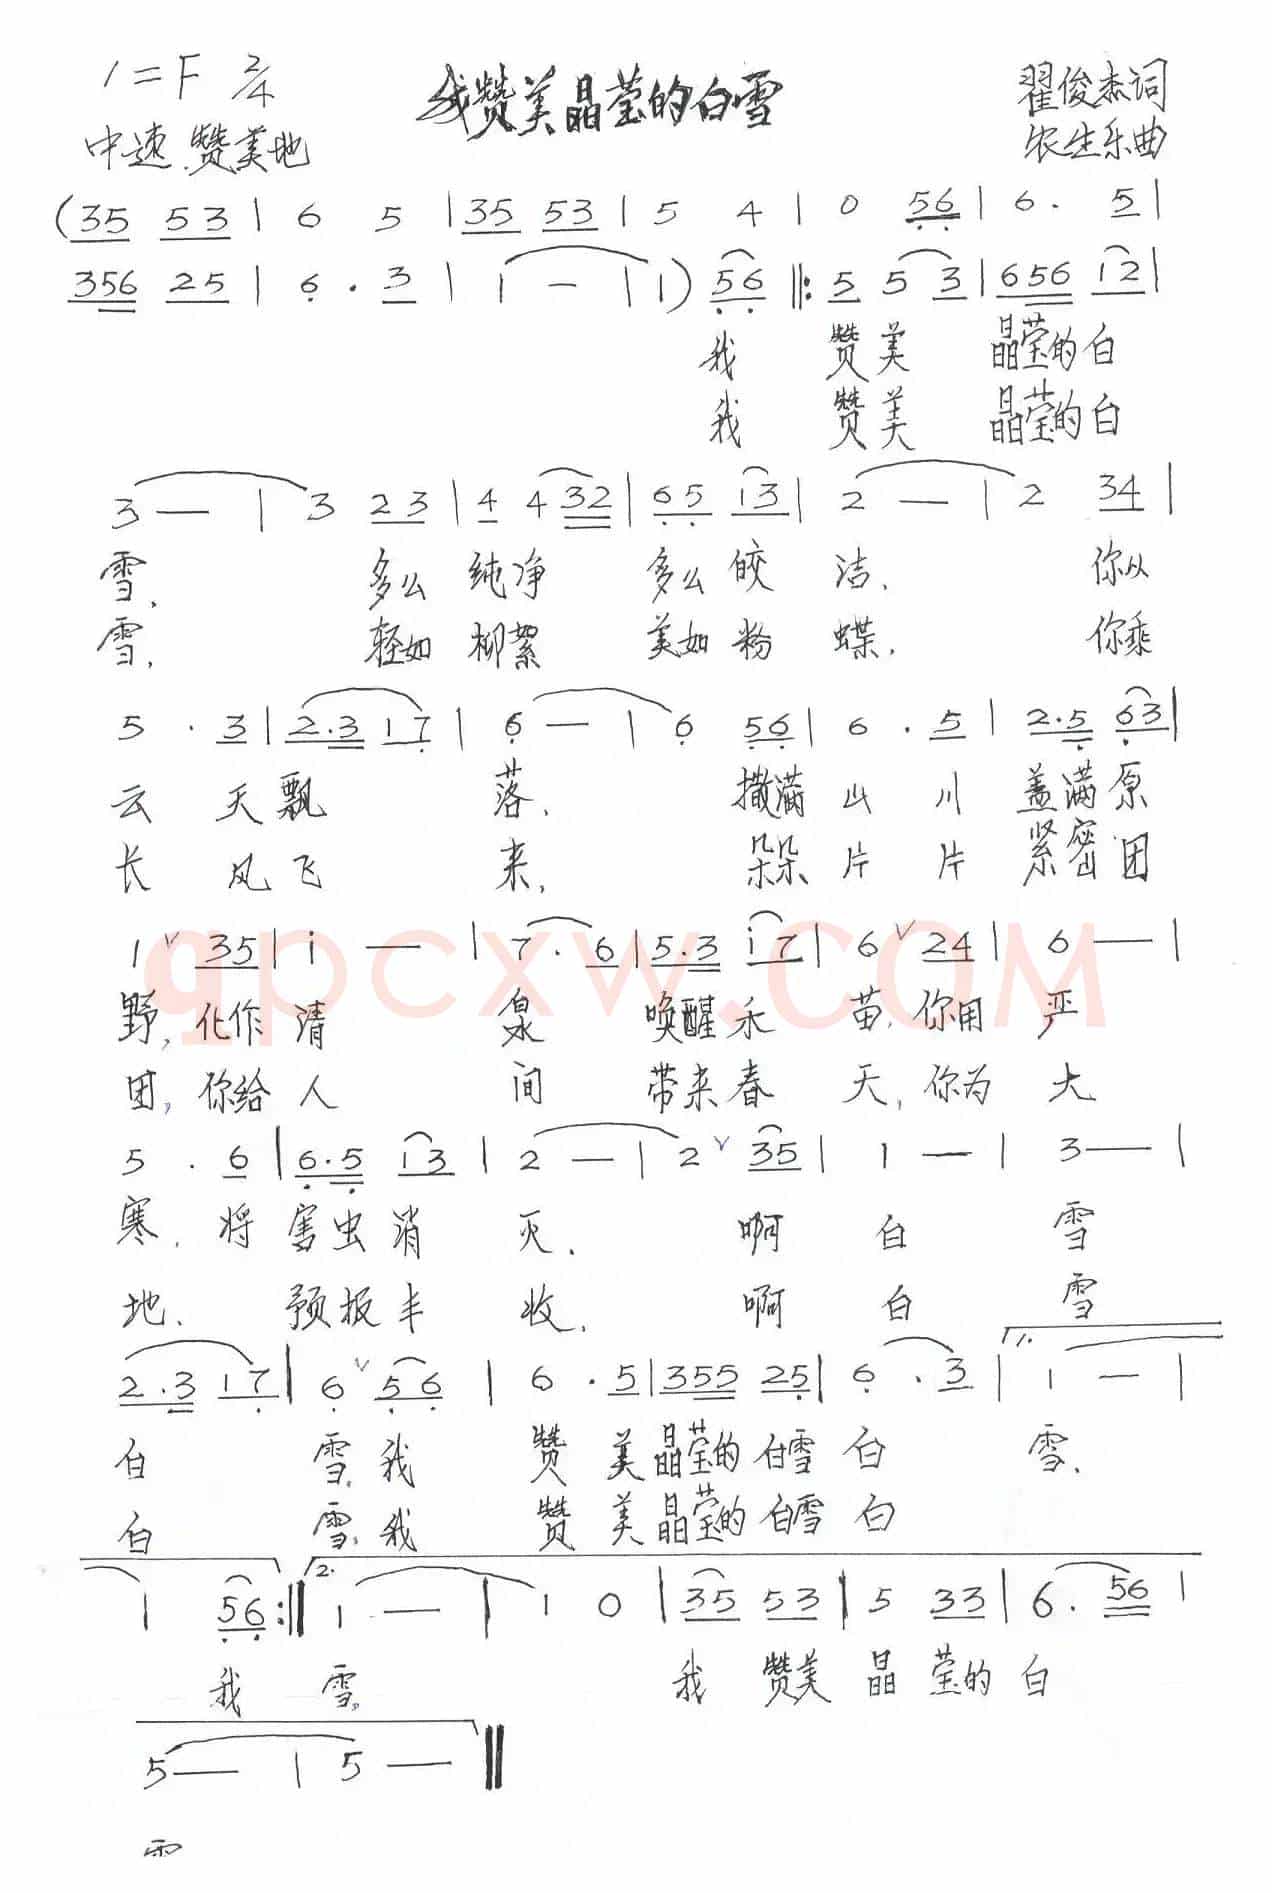 1=F 2/4 我赞美晶莹的白雪 翟俊杰词
中速 赞美地 农生乐曲
(35 53 | 6 5 | 35 53 | 5 4 | 0 56 | 6. 5 |
356 25 | 6. 3 | 1 - | 1) 56 ‖: 5 5 3 | 656 12 |
我 赞美 晶莹的白
我 赞美 晶莹的白
3 - | 3 23 | 4 4 32 | 65 13 | 2 - | 2 34 |
雪, 多么 纯净 多么 皎 洁、 你从
雪, 轻如 柳絮 美如粉 蝶, 你乘
5 . 3 | 2.3 17 | 6 - | 6 56 | 6 . 5 | 2.5 63 |
云 天飘 落, 撒满 山 川 盖满原
长 风飞 来, 朵朵 片 片 紧密团
1 ∨ 35 | i - | 7. 6 | 5.3 i7 | 6 ∨ 24 | 6 - |
野, 化作 清 泉 唤醒禾 苗, 你用 严
团, 你给 人 间 带来春 天, 你为 大
5 . 6 | 6.5 13 | 2 - | 2 ∨ 35 | 1 - | 3 - |
寒, 将 害虫消 灭. 啊 白 雪
地. 预报丰 收, 啊 白 雪
1.
2.3 17 | 6 ∨ 56 | 6 . 5 | 355 25 | 6 . 3 | 1 - |
白 雪, 我 赞 美 晶莹的 白雪 白 雪,
白 雪, 我 赞 美 晶莹的 白雪 白
2.
1 56 :‖ 1 - | 1 0 | 35 53 | 5 33 | 6. 56 |
我 雪, 我 赞美 晶 莹的 白
5 - | 5 - ‖
雪
qpcxw.com